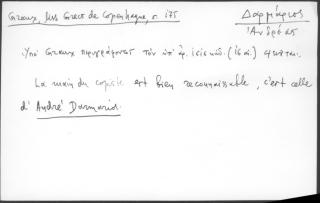 Graux, Mss Grecs de Copenhague, p. 175
Δαρμάριος
Ἀνδρέας
Ὑπὸ Graux περιγράφεται τὸν ὑπ' ἀρ.
La main du copiste est bien reconnaissable, c'est celle
d'André Darmarios.